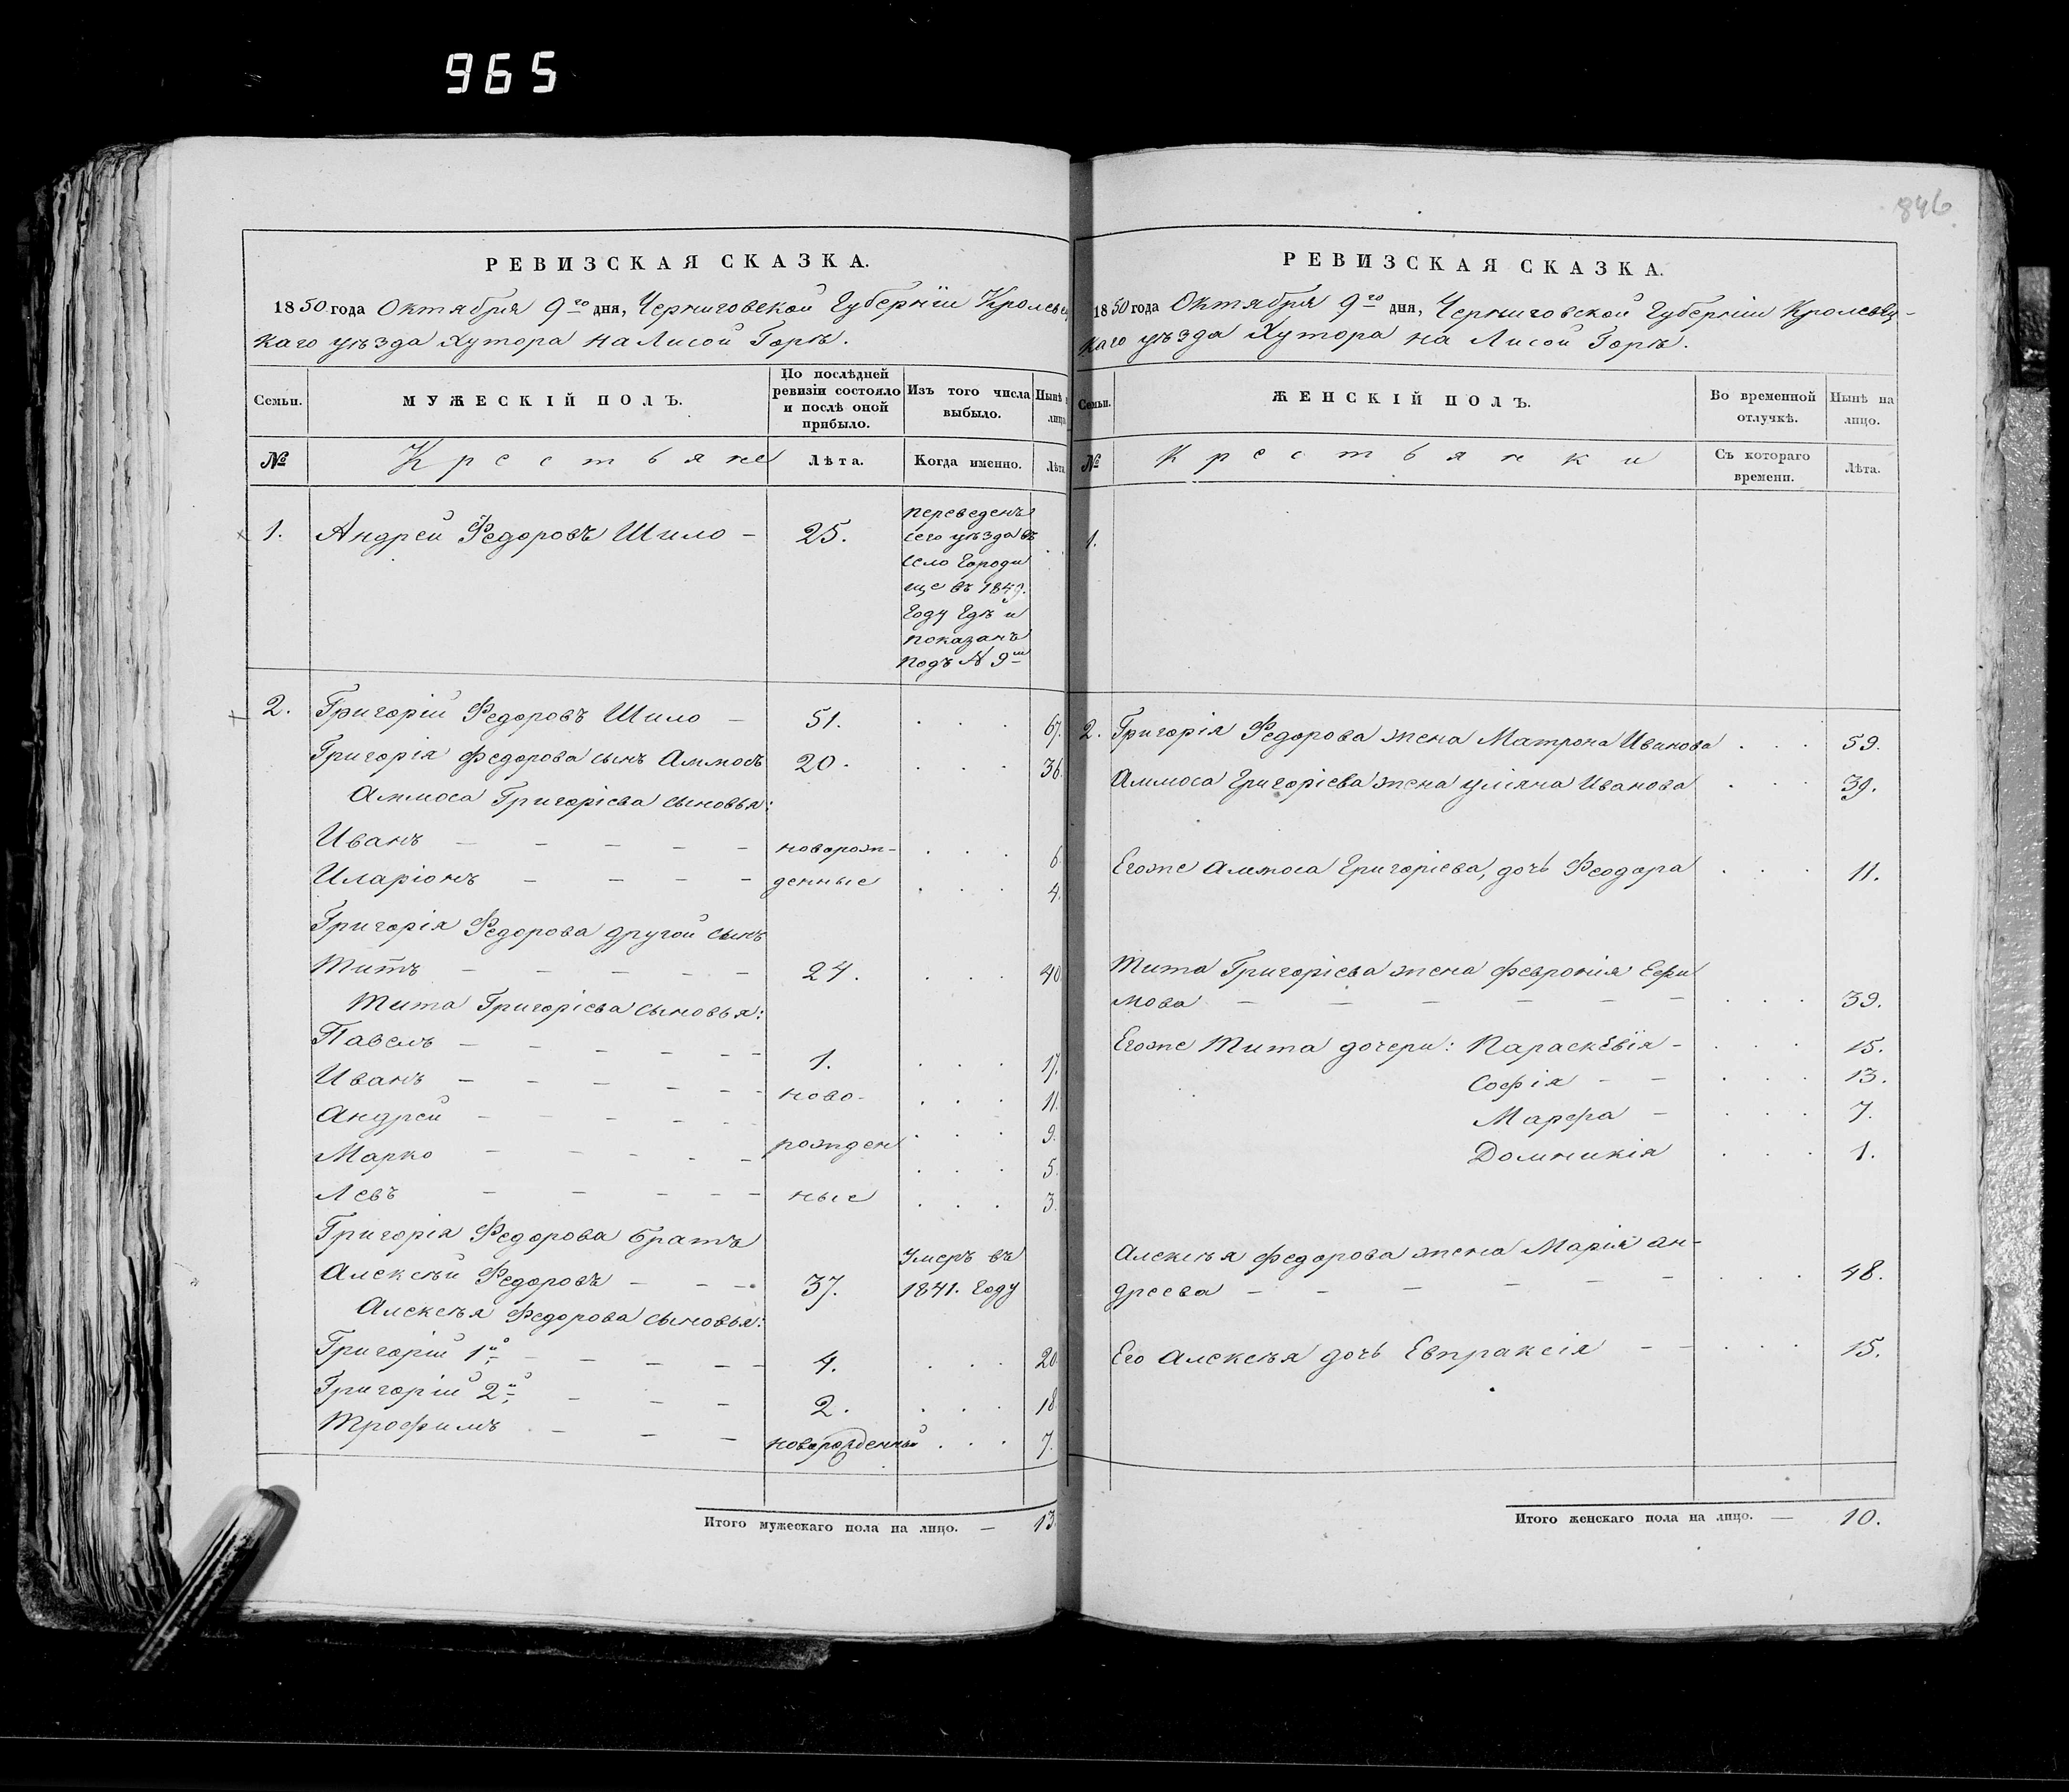 965
846
РЕВИЗСКАЯ СКАЗКА.
1850 года Октября 9го дня, Черниговской Губернiи Кролевец
каго уѣзда Хутора на Лисой Горѣ.
Семьи.
МУЖЕСКІЙ ПОЛЪ.
По послѣдней
ревизіи состояло
и послѣ оной
прибыло.
Изъ того числа
выбыло.
Нынѣ н
лицо
№
Крестьяне
Лѣта.
Когда именно.
Лѣта
1. Андрей Федоровъ Шило - 25.
переведенъ
сего уѣзда въ
село Городи
ще въ 1849.
Году Гдѣ и
показанъ
подъ № 9ш
2. Григорій Федоровъ Шило - 51. . . . 67.
Григорія Федорова сынъ Аммосъ 20. . . . 36.
Аммоса Григоріева сыновья:
Иванъ - - - - - новорож- . . . 6.
Иларіонъ - - - - денные . . . 4.
Григорія Федорова другой сынъ
Титъ - - - - - 24. . . . 40
Тита Григоріева сыновья:
Павелъ - - - - - - 1. . . . 17.
Иванъ - - - - - - ново- . . . 11.
Андрей - - - - - . . . 9.
Марко - - - - - рожден . . . 5.
Левъ - - - - - ные . . . 3.
Григорія Федорова братъ
Алексѣй Федоровъ - - - 37. Умеръ въ
1841. Году
Алексѣя Федорова сыновья:
Григорій 1й - - - - - 4. . . . 20.
Григорій 2й - - - - 2. . . . 18.
Трофимъ - - - новорожденный . . . 7.
Итого мужескаго пола на лицо. — 13.
РЕВИЗСКАЯ СКАЗКА.
1850 года Октября 9го дня, Черниговской Губерніи Кролевец-
каго уѣзда Хутора на Лисой Горѣ.
Семьи.
ЖЕНСКІЙ ПОЛЪ.
Во временной
отлучкѣ.
Нынѣ на
лицо.
№
Крестьянки
Съ котораго
времени.
Лѣта.
1.
2. Григорія Федорова жена Матрона Иванова . . . 59.
Аммоса Григоріева жена Уліяна Иванова . . . 39.
Егоже Аммоса Григоріева, дочь Феодора . . . 11.
Тита Григоріева жена Февронія Ефи
мова - - - - - - . . . 39.
Егоже Тита дочери: Параскевія - . . . 15.
Софія - - . . . 13.
Марфа - . . . 7.
Домникія . . . 1.
Алексѣя Федорова жена Марія Ан-
дреева - - - - - - . . . 48.
Его Алексѣя дочь Евпраксія - - . . . 15.
Итого женскаго пола на лицо. — 10.